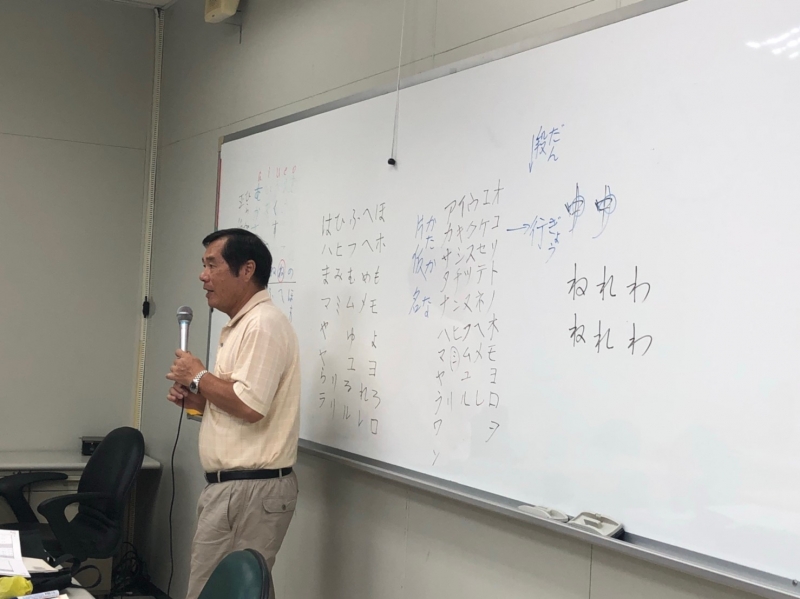 はひふへほ
ハヒフヘホ
まみむめも
マミムメモ
や ゆ よ
ヤ ユ ヨ
らりるれろ
ラリルレロ
かたかな
片仮名
アイウエオ
カキクケコ
サシスセソ
タチツテト
ナニヌネノ
ハヒフヘホ
マミムメモ
ヤ ユ ヨ
ラリルレロ
ワ ヲ
ン
だん
段↓
ぎょう
→行
ゆゆ
ねれわ
ねれわ